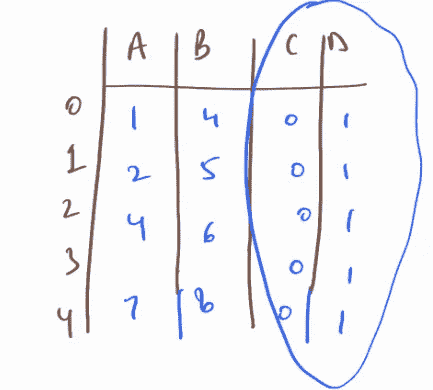 A B C D
0 1 4 0 1
1 2 5 0 1
2 4 6 0 1
3 0 1
4 7 8 0 1